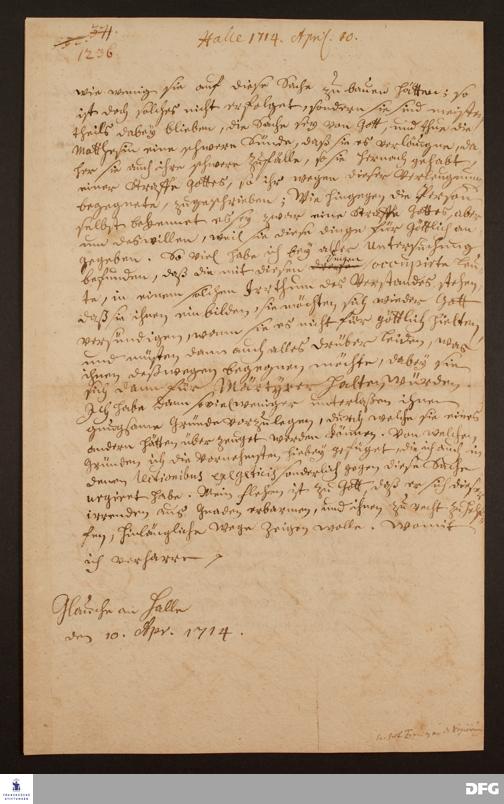 371.
1236
Halle 1714. Apr. 10.
wie wenig sie auf diese Sache zu bauen hätten; so
ist doch solches nicht erfolget, sondern sie sind meisten
theils dabey blieben, die Sache sey von Gott, und thue die
eine schwere Sünde, daß sie es verläugne, da
her sie auch ihre schwere Zufälle, so sie hernach gehabt,
einer Straffe Gottes, so ihr wegen dieser Verleugnung
begegnete, zugeschrieben; Wie hingegen die Person
selbst bekennet es sey zwar eine Straffe Gottes, aber
um deswillen, weil sie diese dinge für Göttlich an
gegeben. So viel habe ich bey aller Untersuchung
befunden, daß die mit diesen dingen occupirte Leu
te, in einem solchen Irrthum des Verstandes stehen,
daß sie ihnen einbilden, sie möchten sich wieder Gott
versündigen, wenn sie es nicht für göttlich hielten,
und müsten dann auch alles drüber leiden, was
ihnen deßwegen begegnen möchte, dabey sie
sich dann für Märtyrer halten würden.
Ich habe dann so viel weniger unterlaßen ihnen
gnugsame Gründe vorzulegen, durch welche sie eines
andern hätten überzeuget werden können. Von welchen
Gründen, ich die vornehmsten hiebey gefüget, die ich auch in
denen Lectionibus exegeticis sonderlich gegen diese Sache
urgiret habe. Mein flehen ist zu Gott, daß er sich dieser
irrenden aus Gnaden erbarmen, und ihnen zu recht zu helf
fen, hinlängliche Wege zeigen wolle. Womit
ich verharre
Glaucha an Halle
den 10. Apr. 1714.
FRANCKESCHE
STIFTUNGEN
DFG